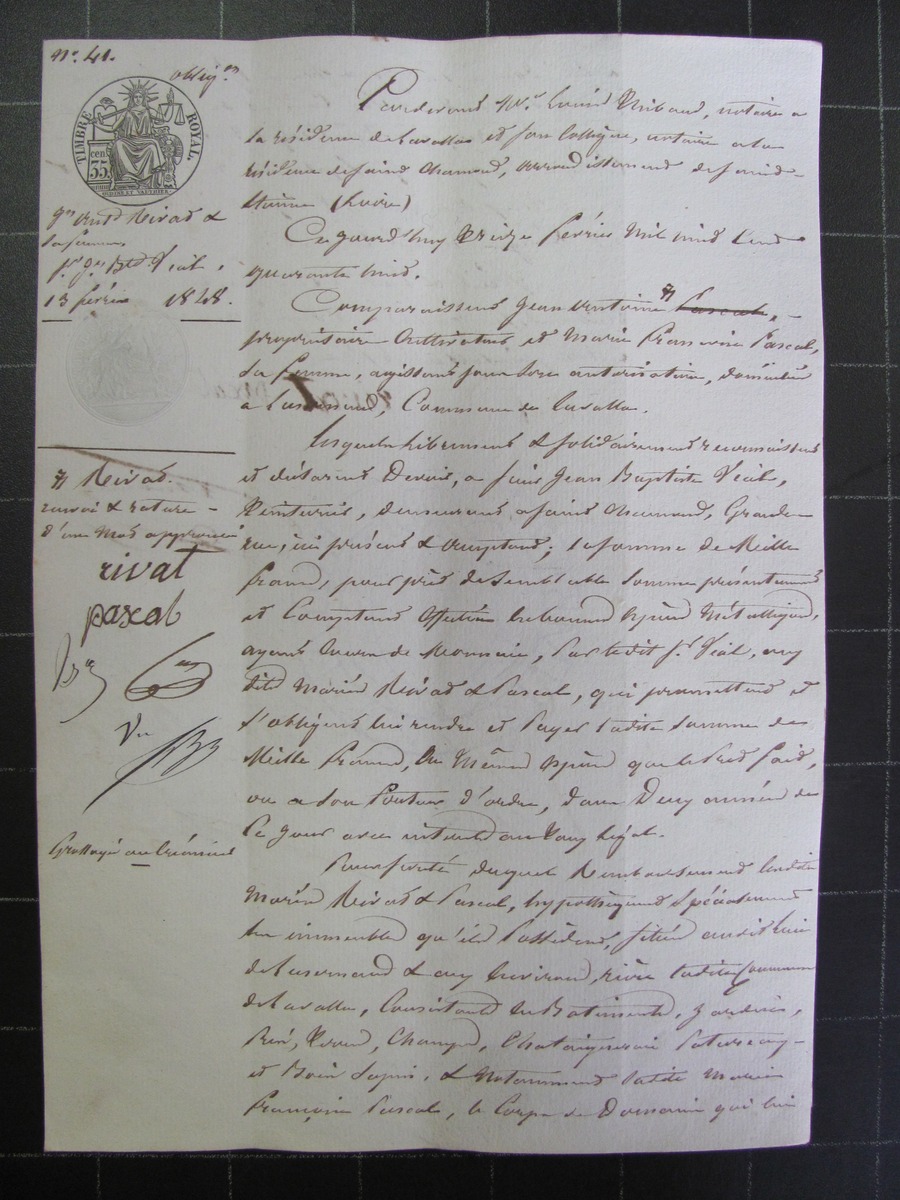 N.° 41.
oblig.on
TIMBRE ROYAL.
35 cen
jn antne Rivat &
sa femme
sr jn Bte Vial.
13 février 1848.
# Rivat.
renvoi & rature
d'un mot approuvés
rivat
pascal
Vu
Grossoyé au Créancier
Pardevant Me. Louis Thibaud, notaire a
la résidence de Lavalla et son Collègue, notaire a la
résidence de saint Chamond, arrondissement de saint-
Etienne (Loire)
Ce jourd'huy treize février Mil huit Cent
quarante huit.
Comparaissent Jean Antoine # Pascal,
propriétaire Cultivateur et Marie Françoise Pascal,
sa femme, agissant sous son autorisation, domiciliés
a Luzernod, Commune de Lavalla.
Lesquels librement & solidairement reconnaissent
et déclarent Devoir, a sieur Jean Baptiste Vial,
Teinturier, demeurant a saint Chamond, Grande
rue, ici présent & acceptant; la somme de Mille
francs, pour prêt de semblable somme présentement
et Comptant effectué en bonnes espèces Métalliques,
ayant cours de Monnaie, Par ledit sr Vial, aux
dits Mariés Rivat & Pascal, qui promettent et
s'obligent lui rendre et Payer ladite somme de
Mille francs, En Mêmes espèces que le Prêt fait,
ou a son Porteur d'ordre, dans Deux années de
Ce jour avec intérêts au Taux légal.
Pour sureté duquel Remboursement lesdits
Mariés Rivat & Pascal, hypothèquent Spécialement
les immeubles qu'ils Possèdent, situés audit lieu
de Luzernod & aux Environs, rière ladite Commune
de Lavalla, Consistant en Batiments, Jardins,
Prés, Terres, Champs, Chataigneraie Patureaux
et Bois Sapins, & Notamment ladite Marie
Françoise Pascal, le Corps de Domaine qui lui